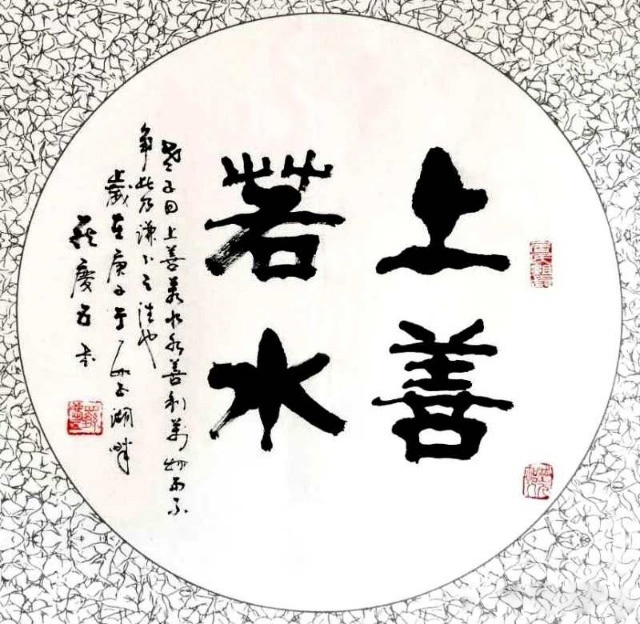 上善
若水
老子曰上善若水水善利萬物而不
爭此乃謙下之德也
歲在庚子于玉湖畔
慶方书